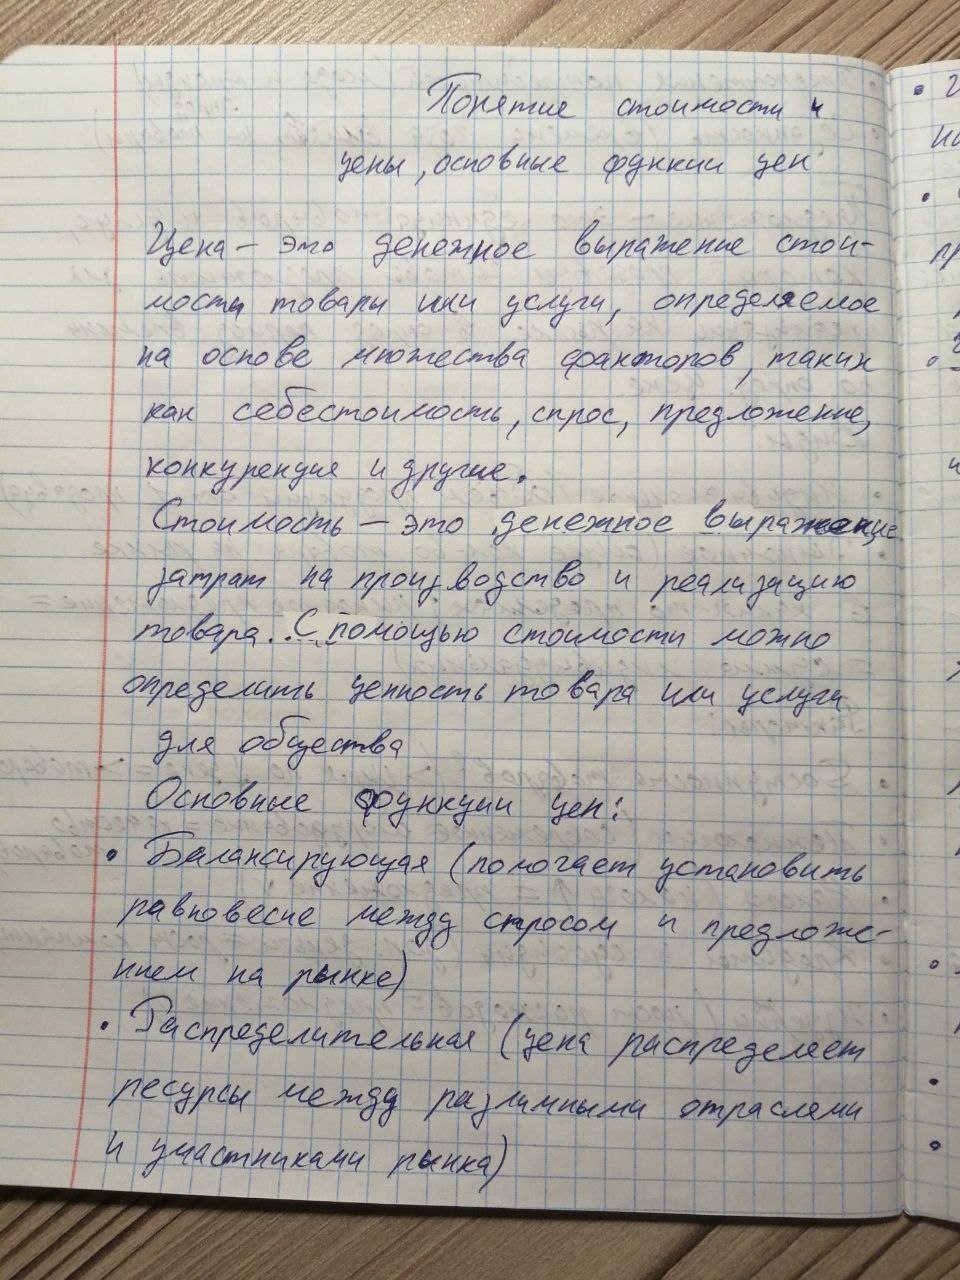 Понятие стоимости и
цены, основные функкии цен
Цена – это денежное выражение стои-
мости товары или услуги, определяемое
на основе множества факторов, таких
как себестоимость, спрос, предложение,
конкуренция и другие.
Стоимость – это денежное выражение
затрат на производство и реализацию
товара. С помощью стоимости можно
определить ценность товара или услуги
для общества
Основные функции цен:
• Балансирующая (помогает установить
равновесие между спросом и предложе-
нием на рынке)
• Распределительная (цена распределяет
ресурсы между различными отраслями
и участниками рынка)